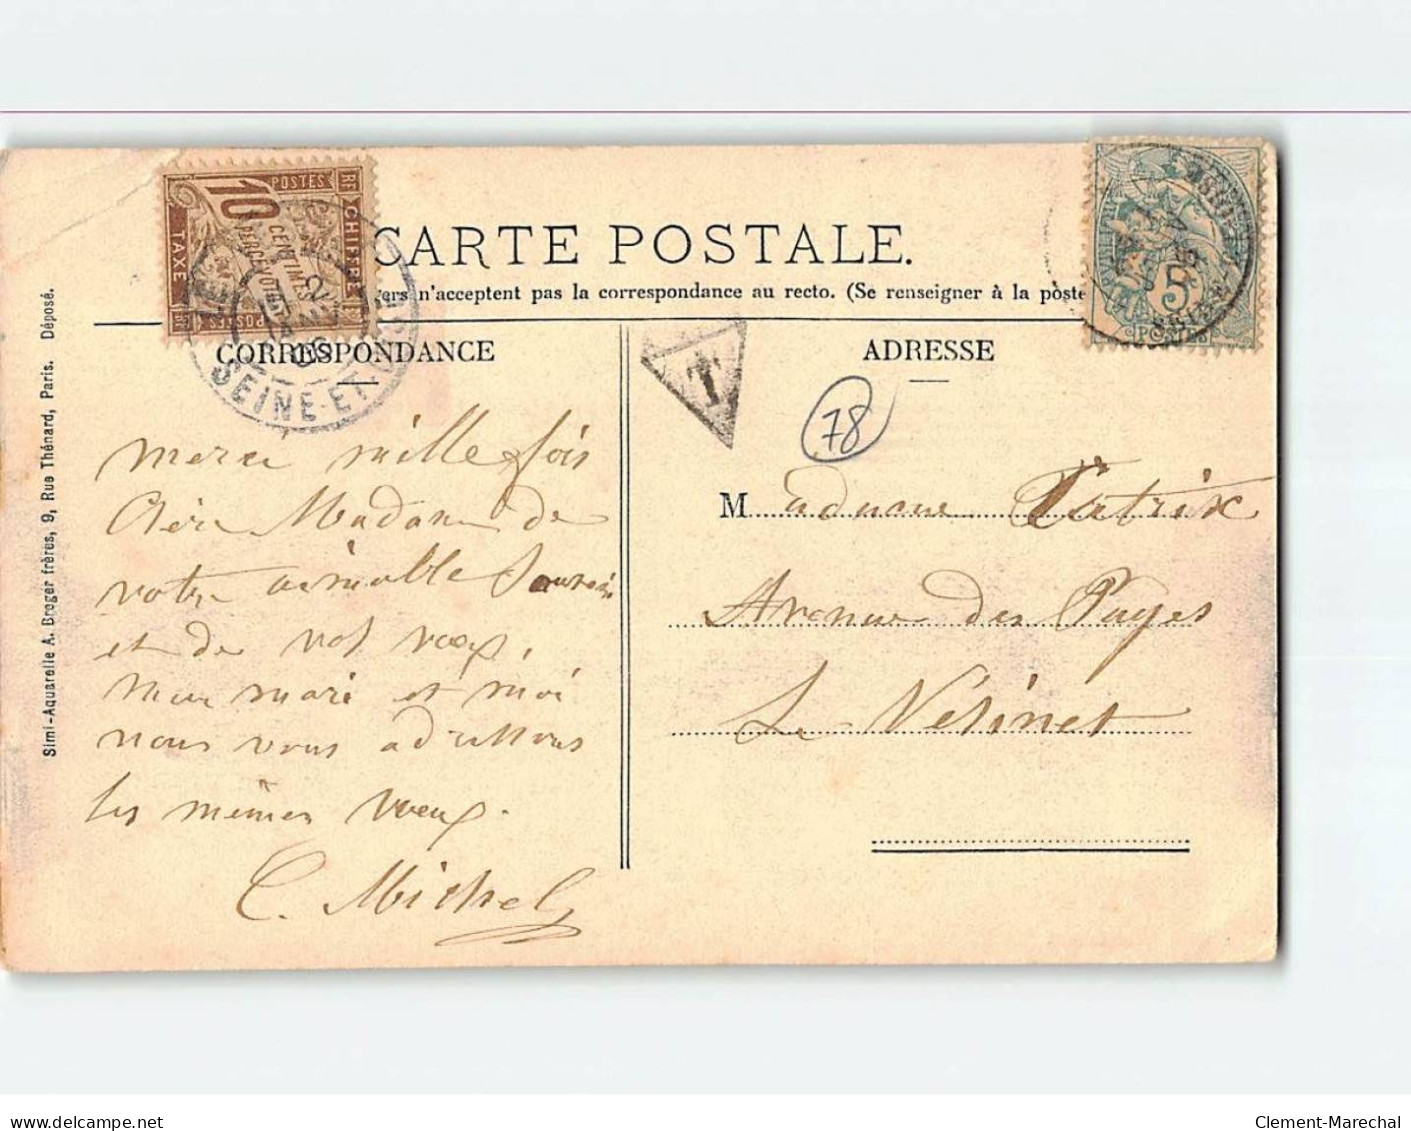 CARTE POSTALE.
n'acceptent pas la correspondance au recto. (Se renseigner à la poste
CORRESPONDANCE
ADRESSE
10
CENTIMES
A PERCEVOIR
POSTES
CHIFFRE
TAXE
RF
SEINE-ET-OISE
T
5
POSTES
78
Merci mille fois
Chère Madame de
votre aimable Souvenir
et de vos vœux,
mon mari et moi
nous vous adressons
les mêmes vœux.
C. Michel
Madame Patrix
Avenue des Pages
Le Vésinet
Simi-Aquarelle A. Breger frères, 9, Rue Thénard, Paris. Déposé.
Clement-Marechal